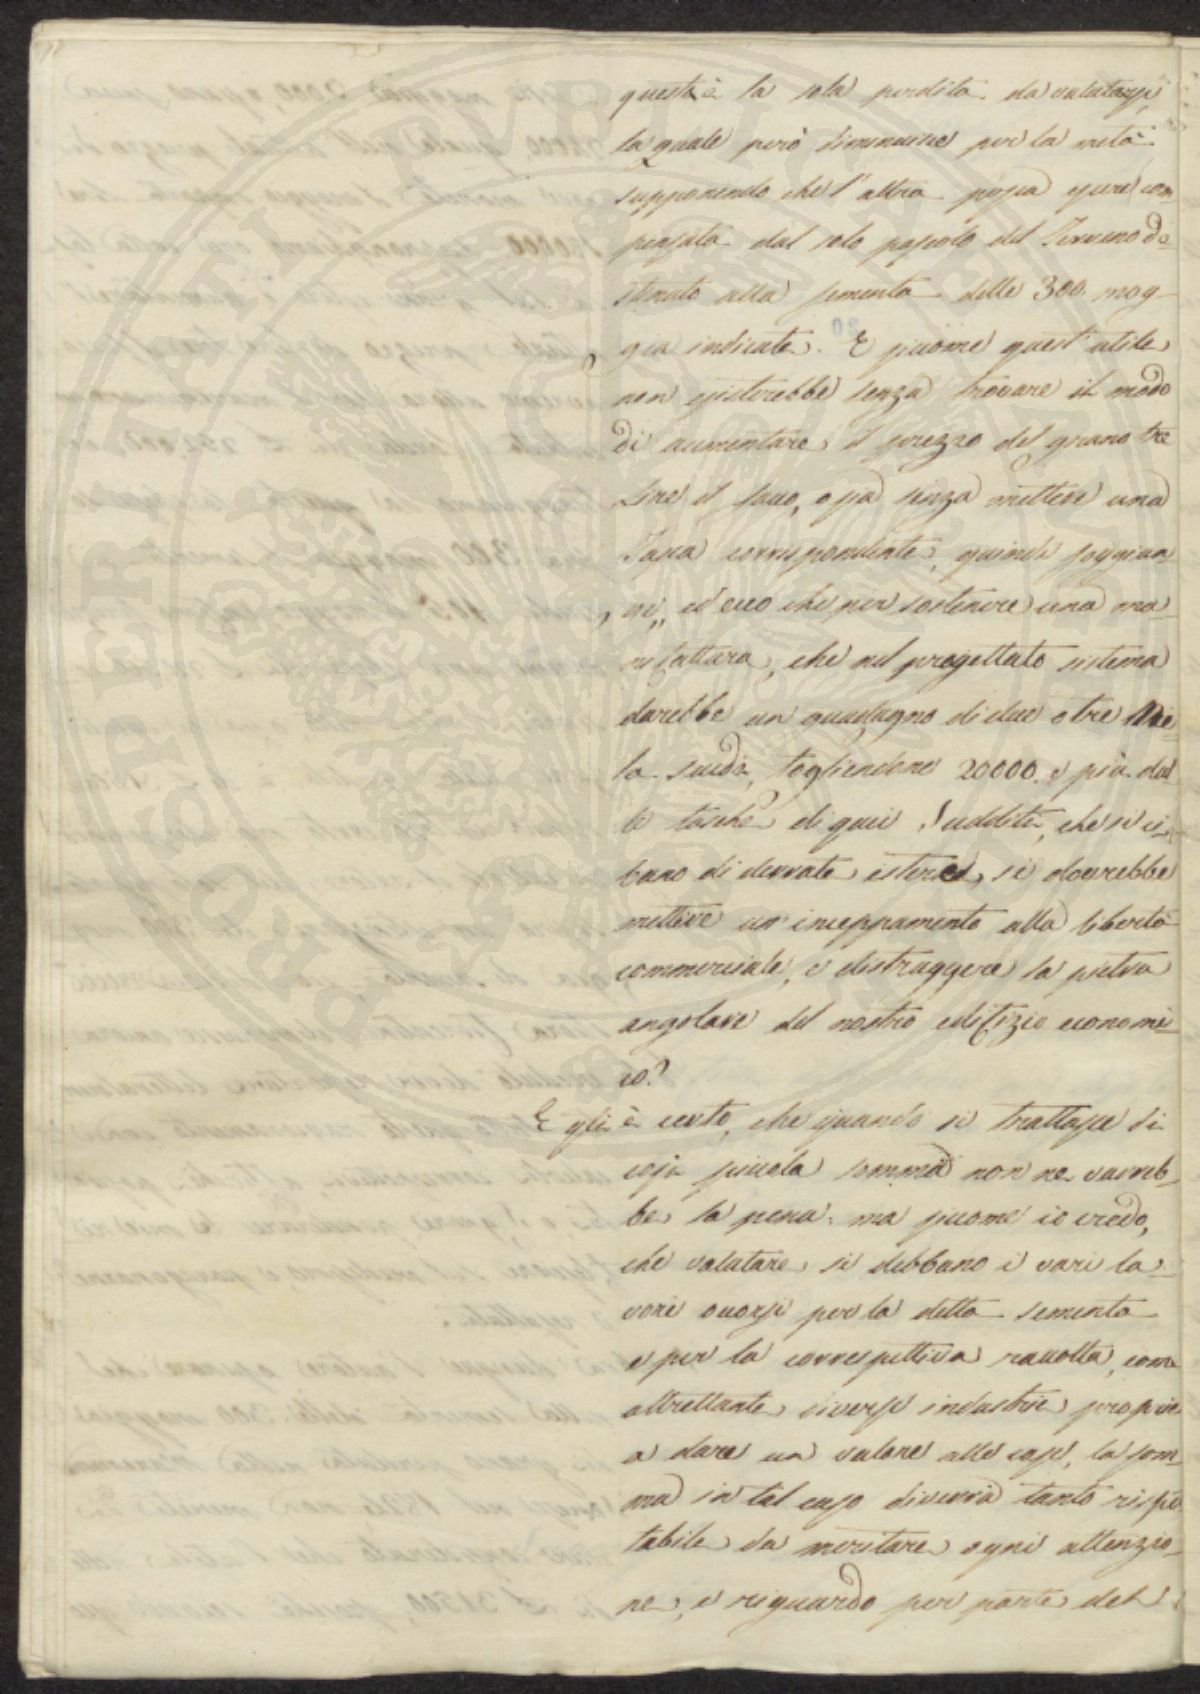 questa è la sola perdita da valutarsi,
la quale però diminuisce per la metà
supponendo che l'altra possa essere com
pensata dal solo pascolo del Terreno de-
stinato alla sementa delle 300. mog-
gia indicate. E siccome quest'utile
non esisterebbe senza trovare il modo
di aumentare il prezzo del grano tre
Lire il sacco, o sia senza mettere una
Tassa corrispondente, quindi soggiun-
se,, ed ecco che per sostenere una ma-
nifattura, che nel progettato sistema
darebbe un guadagno di due o tre Mi-
la scudi, togliendone 20000. e più dal
le tasche di quei Sudditi, che si ci-
bano di derrate estere, si dovrebbe
mettere un'inceppamento alla libertà
commerciale, e distruggere la pietra
angolare del nostro edifizio economi-
co?
Egli è certo, che quando si trattasse di
così piccola somma non ne varreb-
be la pena: ma siccome io credo,
che valutare si debbano i vari la-
vori occorsi per la detta sementa
e per la correspettiva raccolta, come
altrettante diverse industrie proprie
a dare un valore alle cose, la som-
ma in tal caso diverrà tanto rispe
tabile da meritare ogni attenzio-
ne, e riguardo per parte del
PROSPERITATI PVBLICAE AVGENDAE